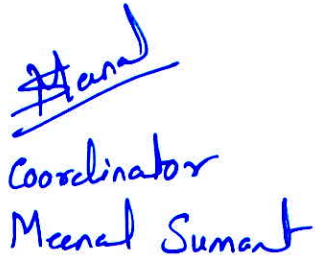 Meenal
Coordinator
Meenal Sumant